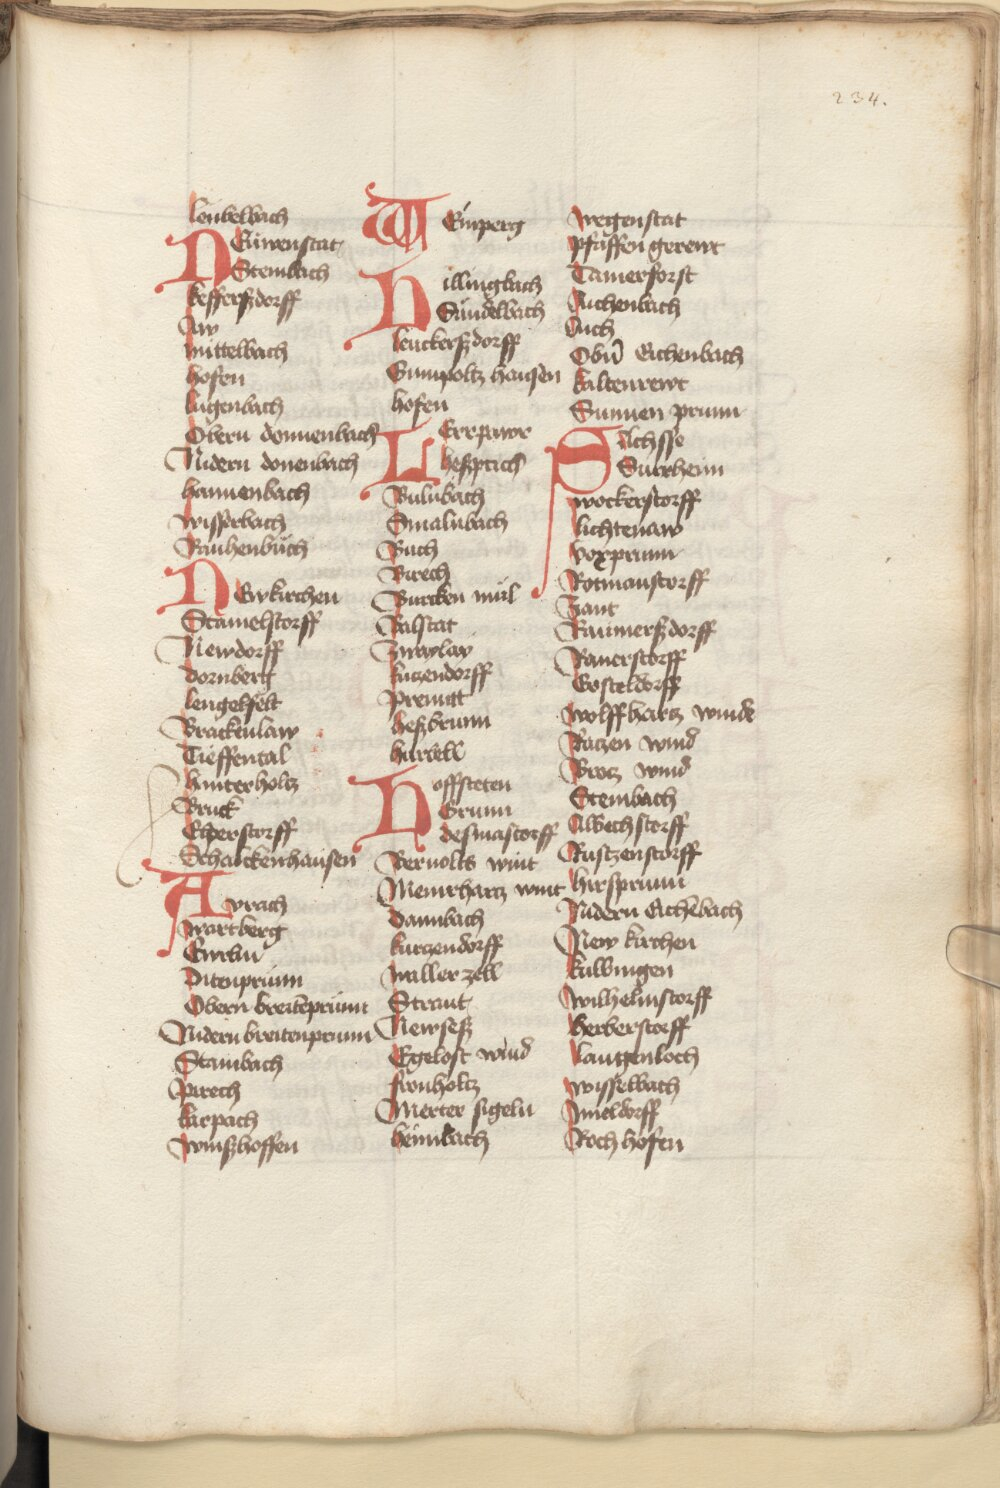 234.
leubelbach
Neuwenstat
Steinbach
kefferszdorff
Aw
mittelbach
hofen
lugenbach
Obern donnenbach
Nidern donenbach
hannenbach
wisserbach
Rauhenbuch
Newkirchen
Stainelstorff
Newdorff
dornberg
lengelfelt
Brackenlaw
Tieffental
hinterholtz
Bruck
Elperstorff
Schalckenhausen
Avrach
wartberg
Ditenprunn
Obern breitenprunn
Nidern breitenprunn
Stainbach
pirech
karpach
winszhoffen
Weinperg
Dillingbach
Sundelbach
leuckerszdorff
Gumpoltz hausen
hofen
Lerrpawr
heszpach
Bulnbach
Smalnbach
Buch
Birech
Burcken mul
Ralstat
kutzendorff
Preunst
heszbrunn
hurbell
Hoffsteten
Grunn
desmastorff
Bernolts wint
Meinhartz wint
Dannbach
kurzendorff
waller zell
Straut
Newsesz
Egelost wind
fronholtz
Merter sigeln
heimbach
wegenstat
pfaffen gerewt
Tamerforst
Aichenbach
Aich
Obern Eichenbach
kaltenrewt
Sunnen prunn
Sachsse
Suterheim
wockerstorff
lichtenaw
voxprunn
Rotmanstorff
Zant
Raumerszdorff
Ranerstorff
Gosteldorff
wolffhartz winde
Ratzen wind
Brotz wind
Steinbach
Albechstorff
Rutzenstorff
hirsprunn
Nidern Eichenbach
New kirchen
kulbingen
wilhelmstorff
herberstorff
langenloch
wisselbach
mieldorff
Roch hofen